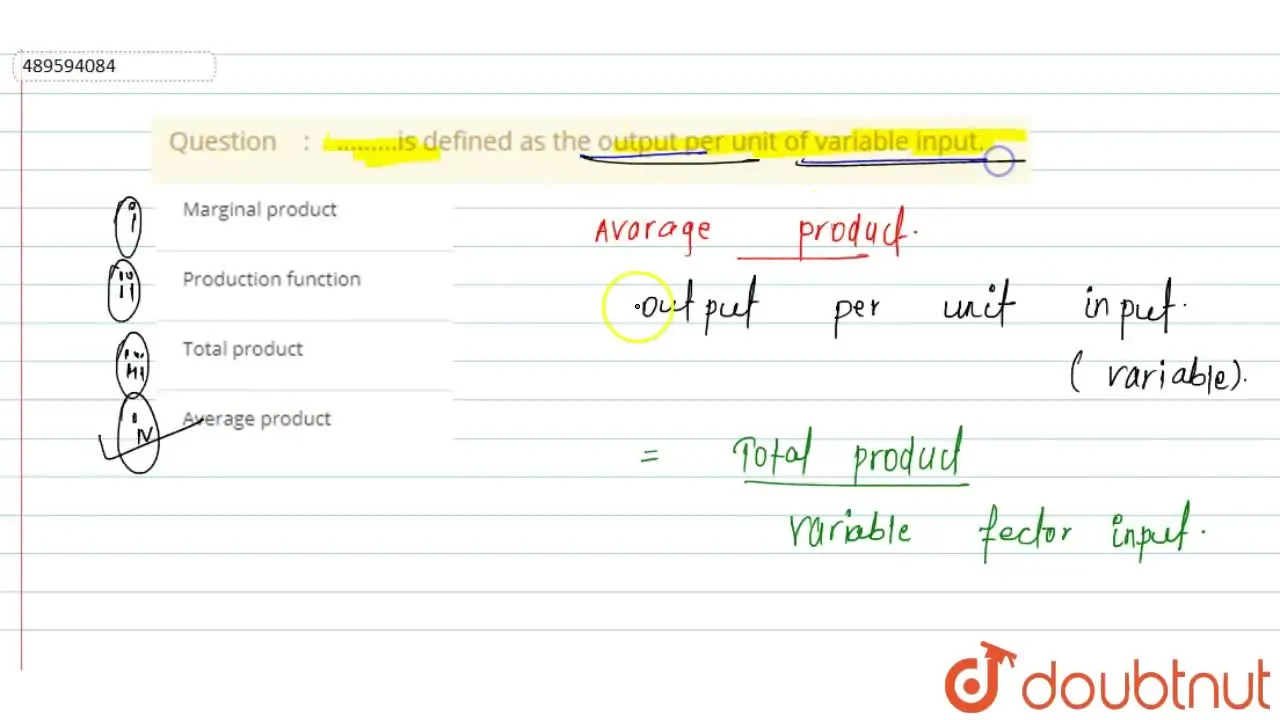 489594084
Question : ..........is defined as the output per unit of variable input.
i Marginal product
ii Production function
iii Total product
iv Average product
Avorage product.
output per unit input.
( variable).
= Total product
variable fector input.
doubtnut